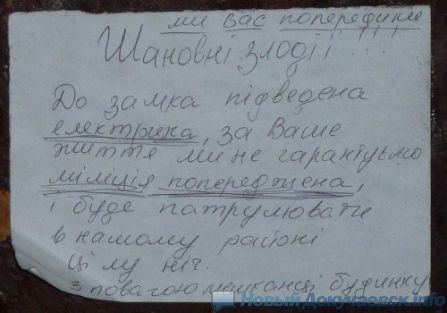 ми вас попередили
Шановні злодії!
До замка підведена
електрика, за Ваше
життя ми не гарантуємо
міліція попереджена,
і буде патрулювати
в нашому районі
цілу ніч.
з повагою мешканці будинку
НовыйДокучаевск.info